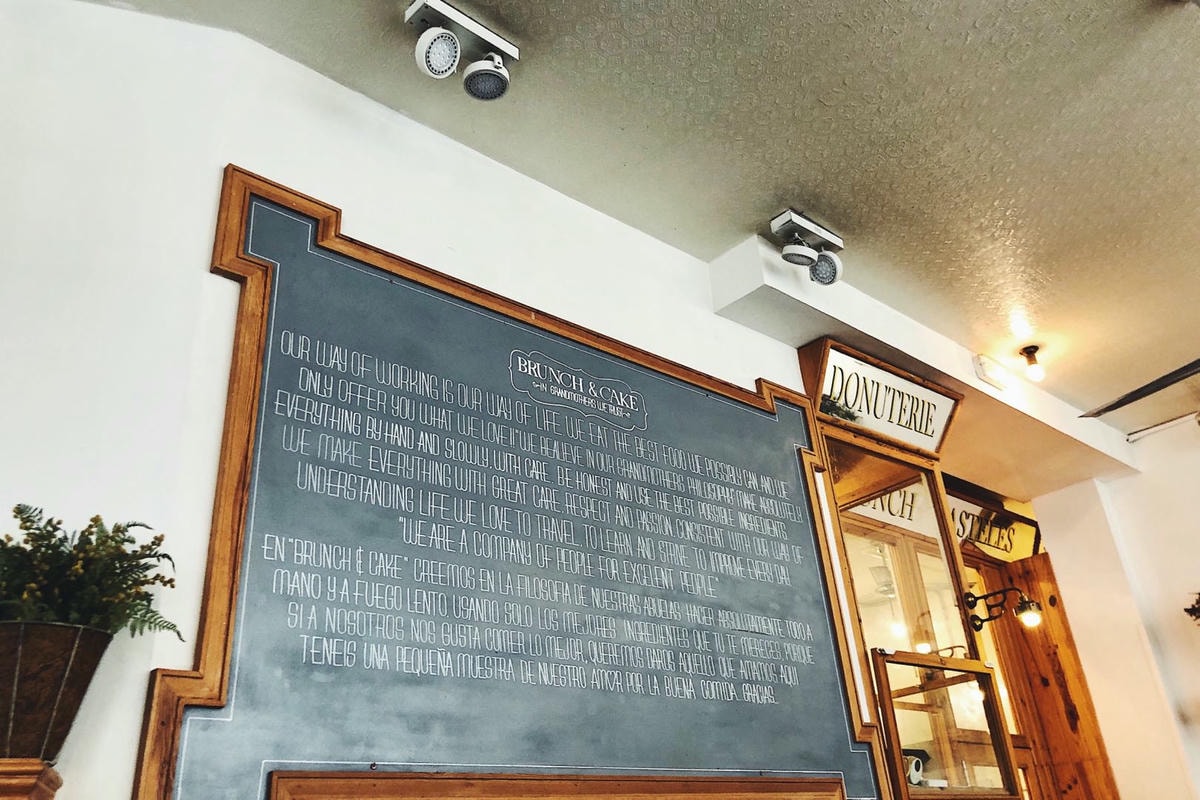 BRUNCH & CAKE
IN GRANDMOTHERS WE TRUST
OUR WAY OF WORKING IS OUR WAY OF LIFE. WE EAT THE BEST FOOD WE POSSIBLY CAN AND WE
ONLY OFFER YOU WHAT WE LOVE!! WE BEALIEVE IN OUR GRANDMOTHERS PHILOSOPHY: MAKE ABSOLUTELY
EVERYTHING BY HAND AND SLOWLY, WITH CARE. BE HONEST AND USE THE BEST POSSIBLE INGREDIENTS.
WE MAKE EVERYTHING WITH GREAT CARE, RESPECT AND PASSION, CONSISTENT WITH OUR WAY OF
UNDERSTANDING LIFE. WE LOVE TO TRAVEL, TO LEARN AND STRIVE TO IMPROVE EVERY DAY.
"WE ARE A COMPANY OF PEOPLE FOR EXCELENT PEOPLE"
EN "BRUNCH & CAKE" CREEMOS EN LA FILOSOFIA DE NUESTRAS ABUELAS: HACER ABSOLUTAMENTE TODO A
MANO Y A FUEGO LENTO USANDO SOLO LOS MEJORES INGREDIENTES QUE TU TE MERECES. PORQUE
SI A NOSOTROS NOS GUSTA COMER LO MEJOR, QUEREMOS DAROS AQUELLO QUE AMAMOS. AQUI
TENEIS UNA PEQUEÑA MUESTRA DE NUESTRO AMOR POR LA BUENA COMIDA. GRACIAS...
DONUTERIE
NCH
ASTELES